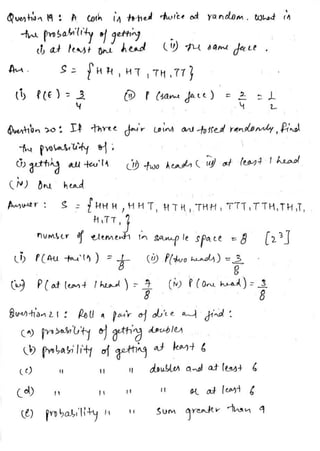 Question 19 : A coin is tossed twice at random. What is
the probability of getting
(i) at least one head (ii) the same face .
Ans. S = {HH, HT, TH, TT}
(i) P(E) = 3/4 (ii) P (same face) = 2/4 = 1/2
Question 20: If three fair coins are tossed randomly, find
the probability of :
(i) getting all tails (ii) two heads (iii) at least 1 head
(iv) One head
Answer : S = {HHH, HHT, HTH, THH, TTT, TTH, THT,
HTT, }
number of elements in sample space = 8 [2³]
(i) P(All tails) = 1/8 (ii) P(two heads) = 3/8
(iii) P(at least 1 head) = 7/8 (iv) P(One head) = 3/8
Question 21 : Roll a pair of dice and find :
(a) probability of getting doubles
(b) probability of getting at least 6
(c) " " doubles and at least 6
(d) " " " or at least 6
(e) probability " " sum greater than 9